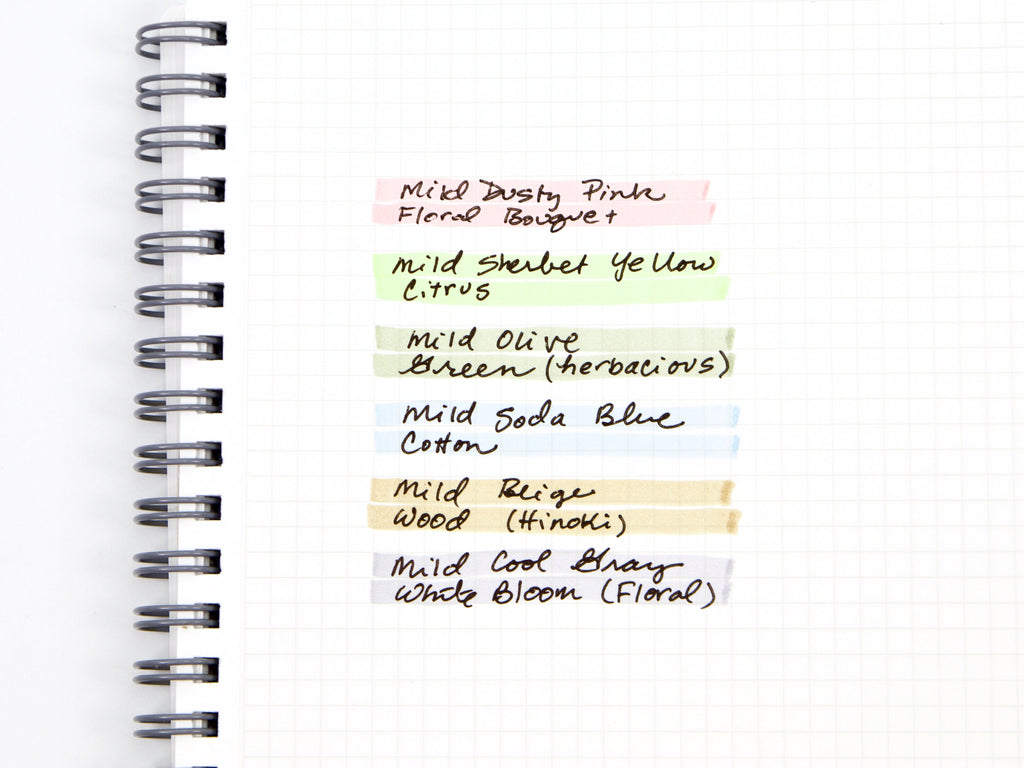 Mild Dusty Pink
Floral Bouquet
Mild Sherbet Yellow
Citrus
Mild Olive
Green (herbacious)
Mild Soda Blue
Cotton
Mild Beige
Wood (Hinoki)
Mild Cool Gray
White Bloom (Floral)